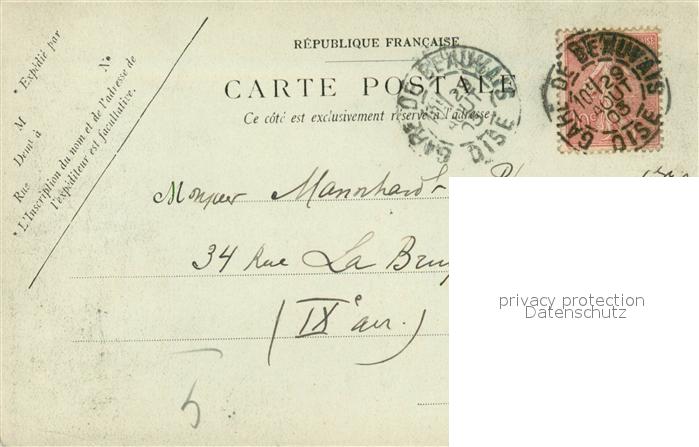 RÉPUBLIQUE FRANÇAISE
CARTE POSTALE
Ce côté est exclusivement réservé à l'adresse
* Expédié par
M
Demt à
Rue
No
* L'Inscription du nom et de l'adresse de
l'expéditeur est facultative.
GARE DE BEAUVAIS
OISE
GARE DE BEAUVAIS
10 29
AOUT
03
OISE
Monsieur
34 Rue La Bruy
(IXe arr.)
privacy protection
Datenschutz
5